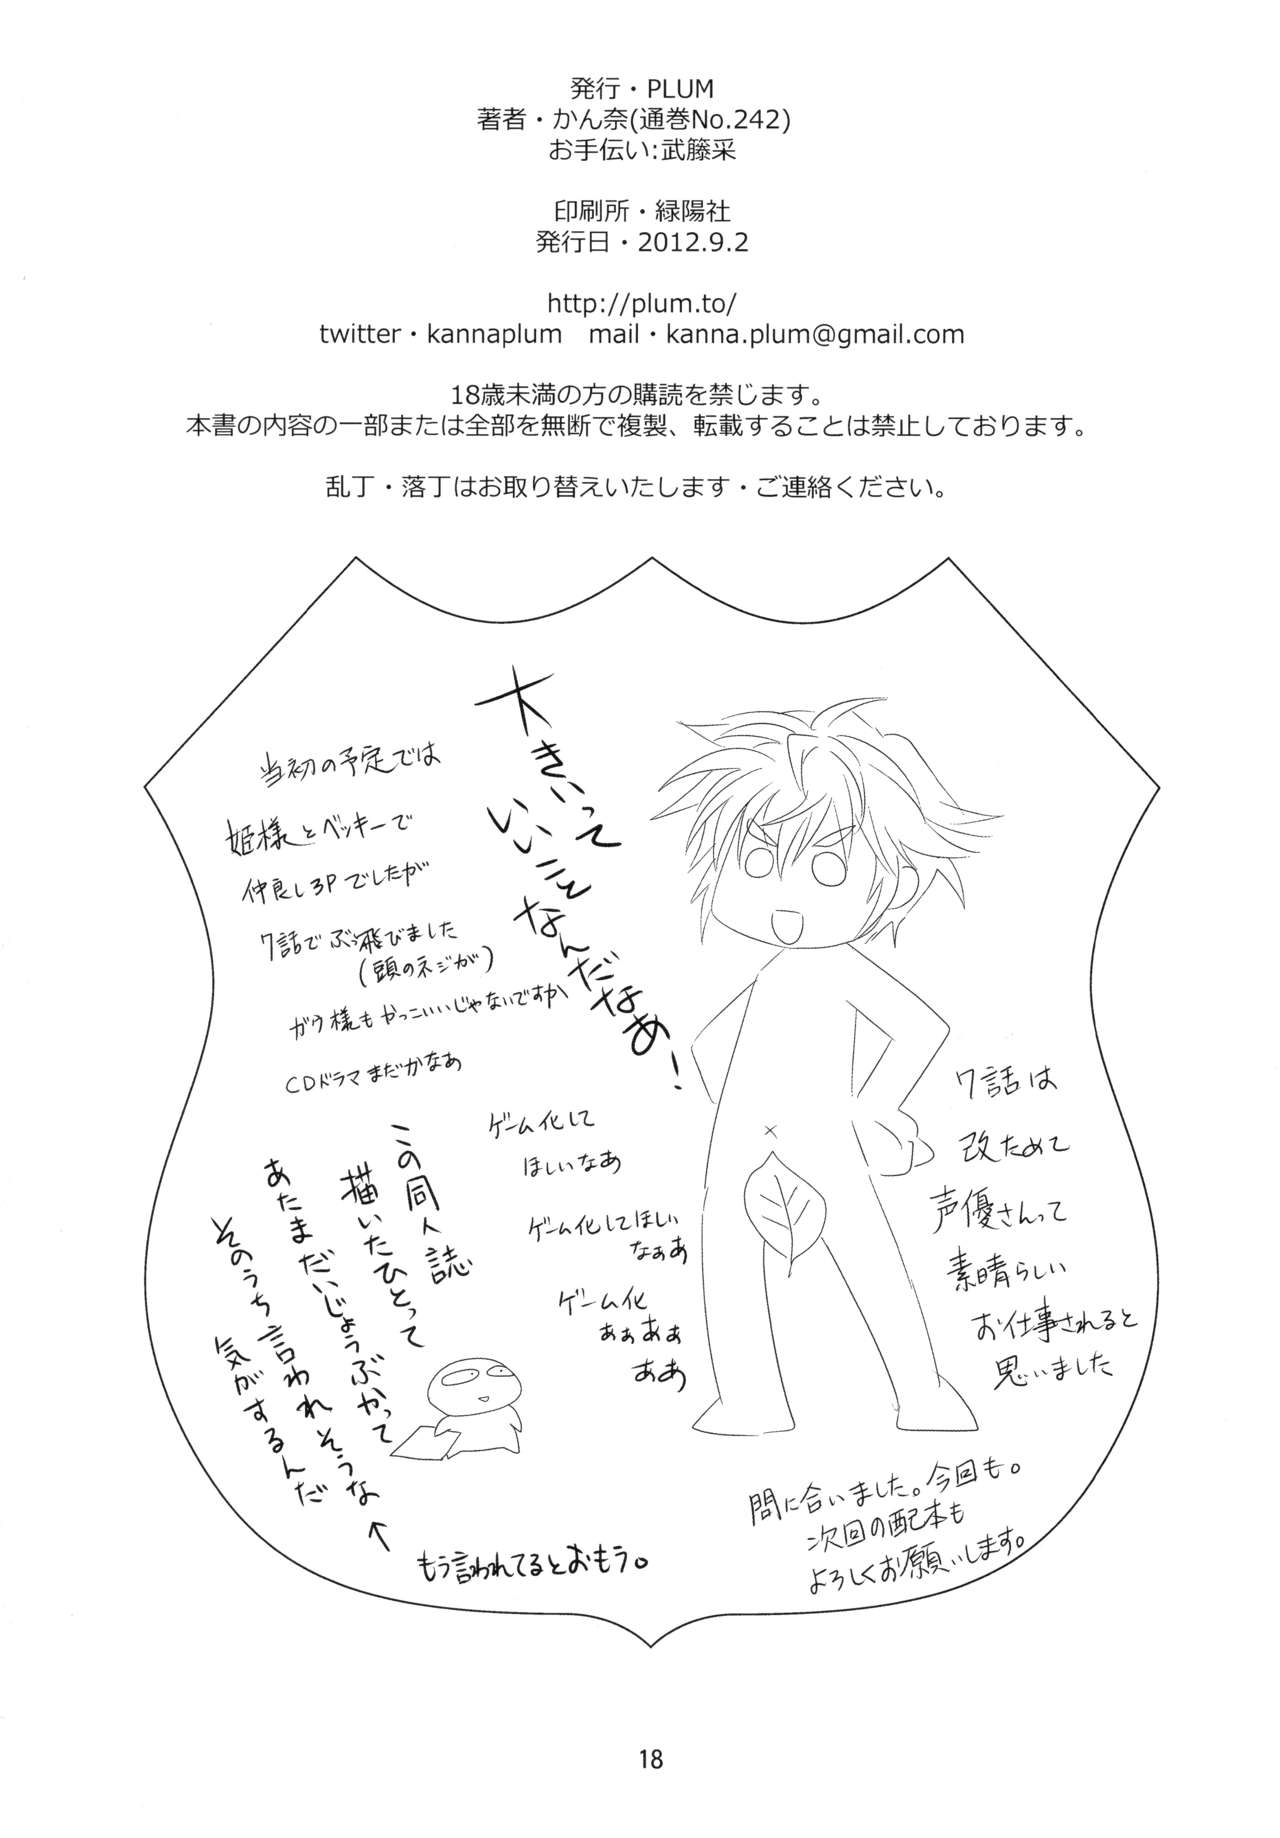 発行・PLUM
著者・かん奈(通巻No.242)
お手伝い:武藤采
印刷所・緑陽社
発行日・2012.9.2
http://plum.to/
twitter・kannaplum　mail・kanna.plum@gmail.com
18歳未満の方の購読を禁じます。
本書の内容の一部または全部を無断で複製、転載することは禁止しております。
乱丁・落丁はお取り替えいたします・ご連絡ください。
大きいって
いいこと
なんだなあ!
当初の予定では
姫様とベッキーで
仲良し3Pでしたが
7話でぶっ飛びました
(頭のネジが)
ガウ様もかっこいいじゃないですか
CDドラマまだかなあ
ゲーム化して
ほしいなあ
ゲーム化してほしい
なぁぁ
ゲーム化
ぁぁぁぁ
ああ
7話は
改ためて
声優さんって
素晴らしい
お仕事されると
思いました
この同人誌
描いたひとって
あたまだいじょうぶかって
そのうち言われそうな
気がするんだ
←
もう言われてるとおもう。
間に合いました。今回も。
次回の配本も
よろしくお願いします。
18